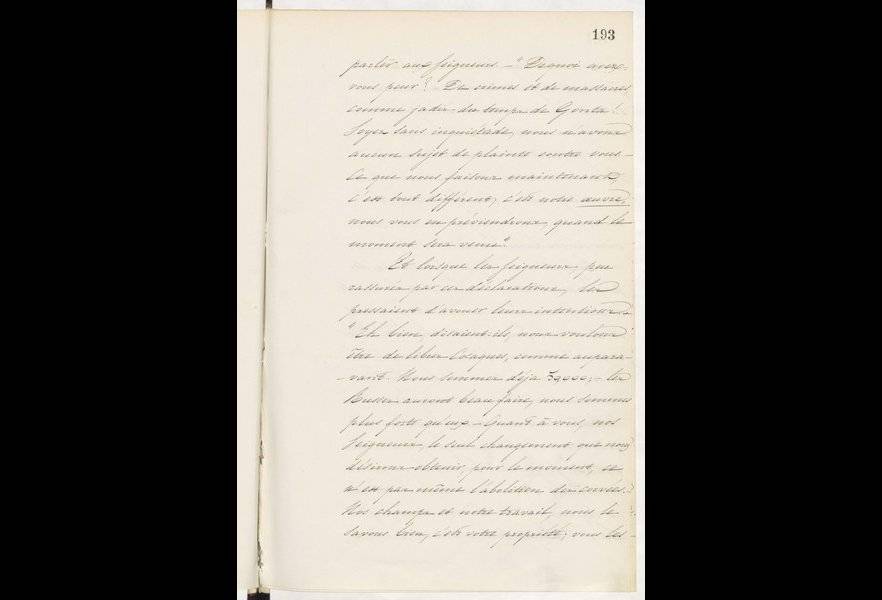 193
parler aux seigneurs – "De quoi avez-
vous peur? De crimes et de massacres
comme jadis du temps de Gonta!
Soyez sans inquiétude, nous n'avons
aucun sujet de plainte contre vous –
Ce que nous faisons maintenant,
c'est tout différent, c'est notre œuvre,
nous vous en préviendrons, quand le
moment sera venu".
Et lorsque les seigneurs, peu
rassurés par ces déclarations, les
pressaient d'avouer leurs intentions –
"Eh bien, disaient-ils, nous voulons
être de libres Cosaques, comme aupara-
vant. Nous sommes déjà – les
Russes auront beau faire, nous sommes
plus forts qu'eux – Quant à vous, nos
seigneurs, le seul changement que nous
désirons obtenir, pour le moment, ce
n'est pas même l'abolition des corvées.
Nos champs et notre travail, nous le
savons bien, c'est votre propriété, vous les